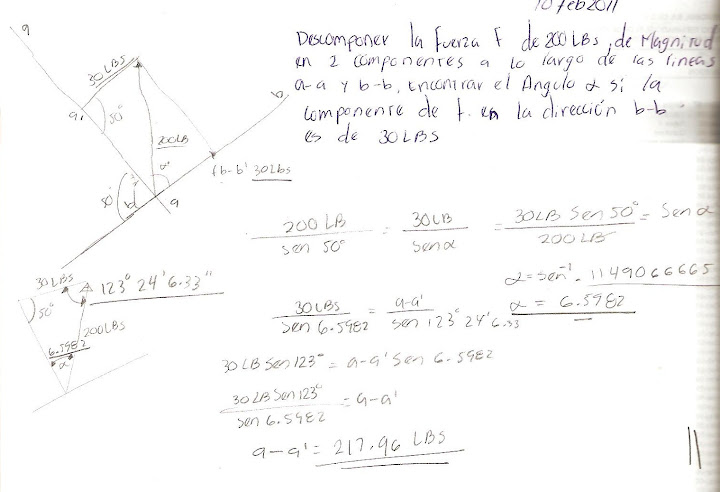 10 feb 2011
Descomponer la fuerza F de 200 LBS, de Magnitud
en 2 componentes a lo largo de las lineas
a-a y b-b, encontrar el Angulo α si la
componente de f. en la dirección b-b
es de 30 LBS
a
30 LBS
a,
50°
200LB
α
b
(b-b' 30Lbs
50°
b'
a
200 LB / sen 50° = 30LB / sen α = 30LB Sen 50° / 200 LB = Sen α
α = sen⁻¹ . 1149066665
α = 6.5982
30 LBS
A 123° 24' 6.33"
50°
200 LBS
6.5982
α
30LBS / sen 6.5982 = a-a' / sen 123° 24' 6.33
30 LB Sen 123° = a-a' Sen 6.5982
30 LB Sen 123° / sen 6.5982 = a-a'
a-a' = 217.96 LBS
11